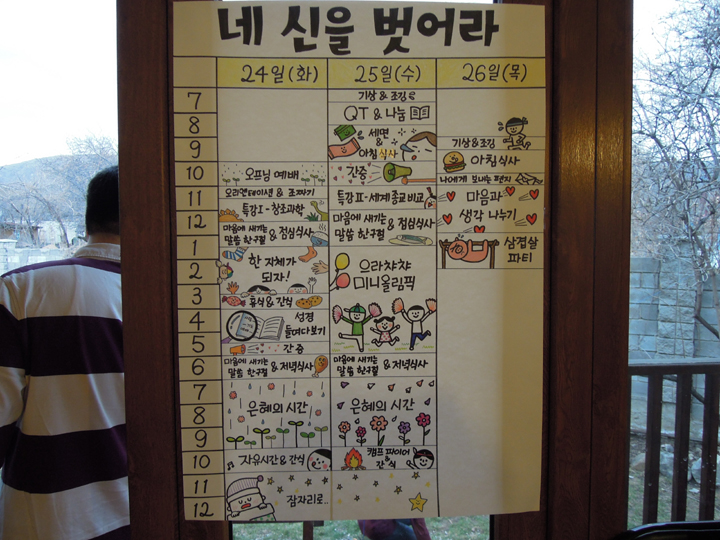 네 신을 벗어라
24일(화) 25일(수) 26일(목)
7
8
9
10
11
12
1
2
3
4
5
6
7
8
9
10
11
12
오프닝 예배
오리엔테이션 & 조짜기
특강 I - 창조과학
마음에 새기는
말씀 한구절 & 점심식사
한 자체가
되자!
휴식 & 간식
성경
들여다보기
간증
마음에 새기는
말씀 한구절 & 저녁식사
은혜의 시간
자유시간 & 간식
잠자리로..
기상 & 조깅
QT & 나눔
세면
&
아침식사
간증
특강 II - 세계종교비교
마음에 새기는
말씀 한구절 & 점심식사
으라챠챠
미니올림픽
마음에 새기는
말씀 한구절 & 저녁식사
은혜의 시간
캠프 파이어
&
간식
기상 & 조깅
아침식사
나에게 보내는 편지
마음과
생각 나누기
삼겹살
파티